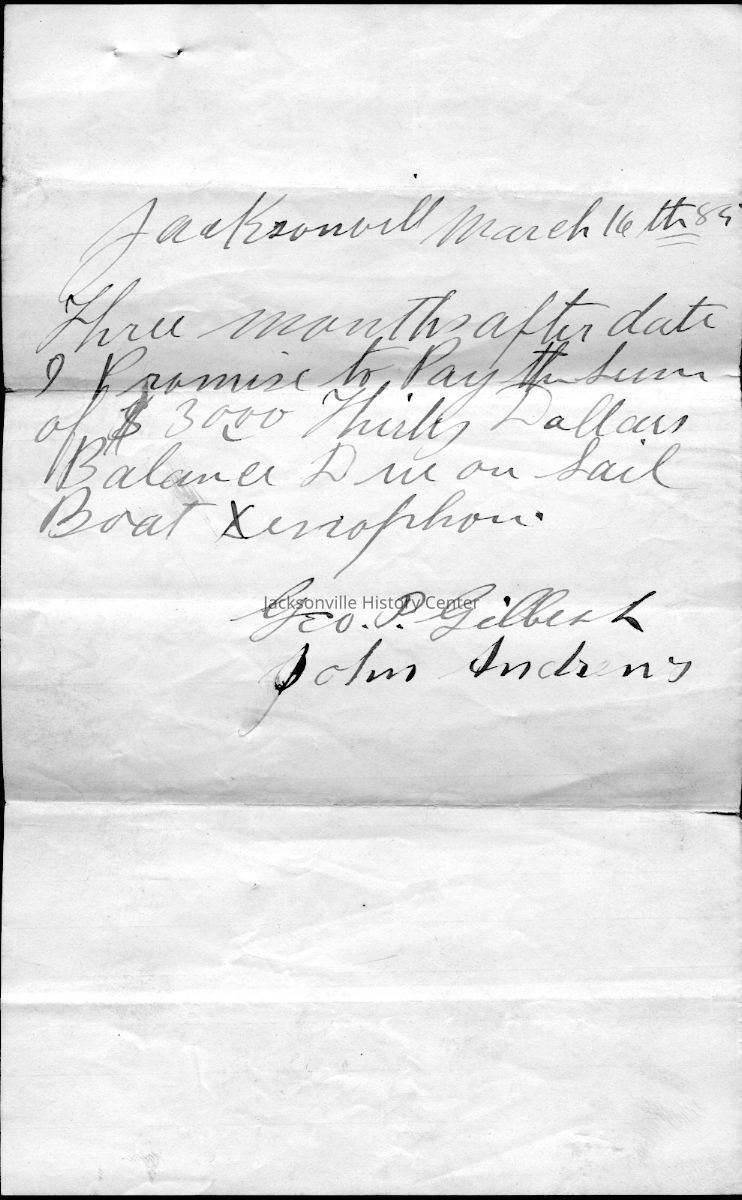 Jacksonvill March 16th 85
Three months after date
I Promise to Pay the Sum
of $ 3000 Thirty Dollars
Balance Due on Sail
Boat Xenophon.
Jacksonville History Center
Geo. P. Gilbert
John Andrews